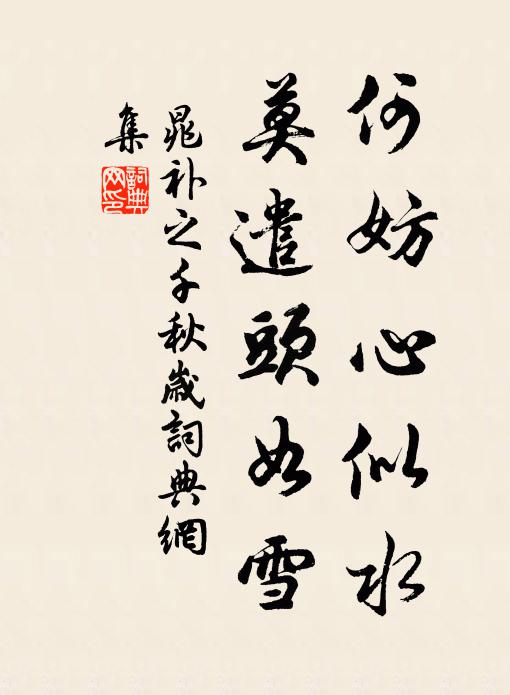 何妨心似水
莫遣頭如雪
晁补之千秋歲詞典網
集
詞典網印